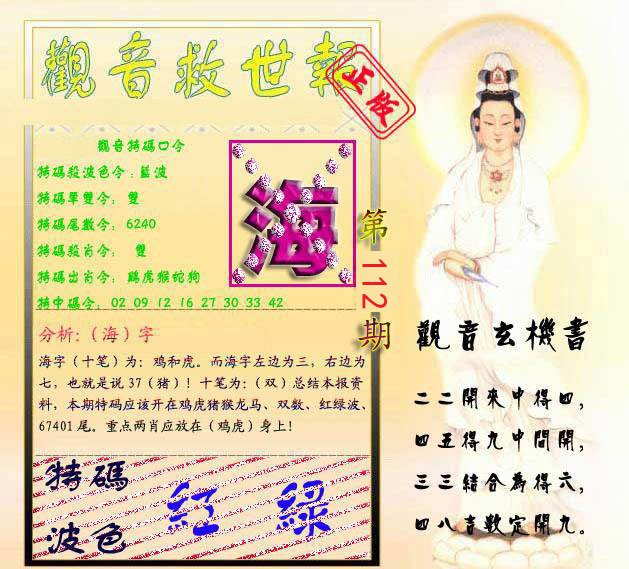 觀音救世報
正版
觀音特碼口令
特碼殺波色令：藍波
特碼單雙令： 雙
特碼尾數令： 6240
特碼殺肖令： 雙
特碼出肖令： 鷄虎猴蛇狗
特中碼令： 02 09 12 16 27 30 33 42
海
第112期
分析：（海）字
海字（十笔）为：鸡和虎。而海字左边为三，右边为
七，也就是说 37（猪）！十笔为：（双）总结本报资
料，本期特码应该开在鸡虎猪猴龙马、双数、红绿波、
67401 尾。重点两肖应放在（鸡虎）身上！
特碼
波色
紅 綠
觀音玄機書
二二開來中得四，
四五得九中間開，
三三結合為得六，
四八吉數定開九。